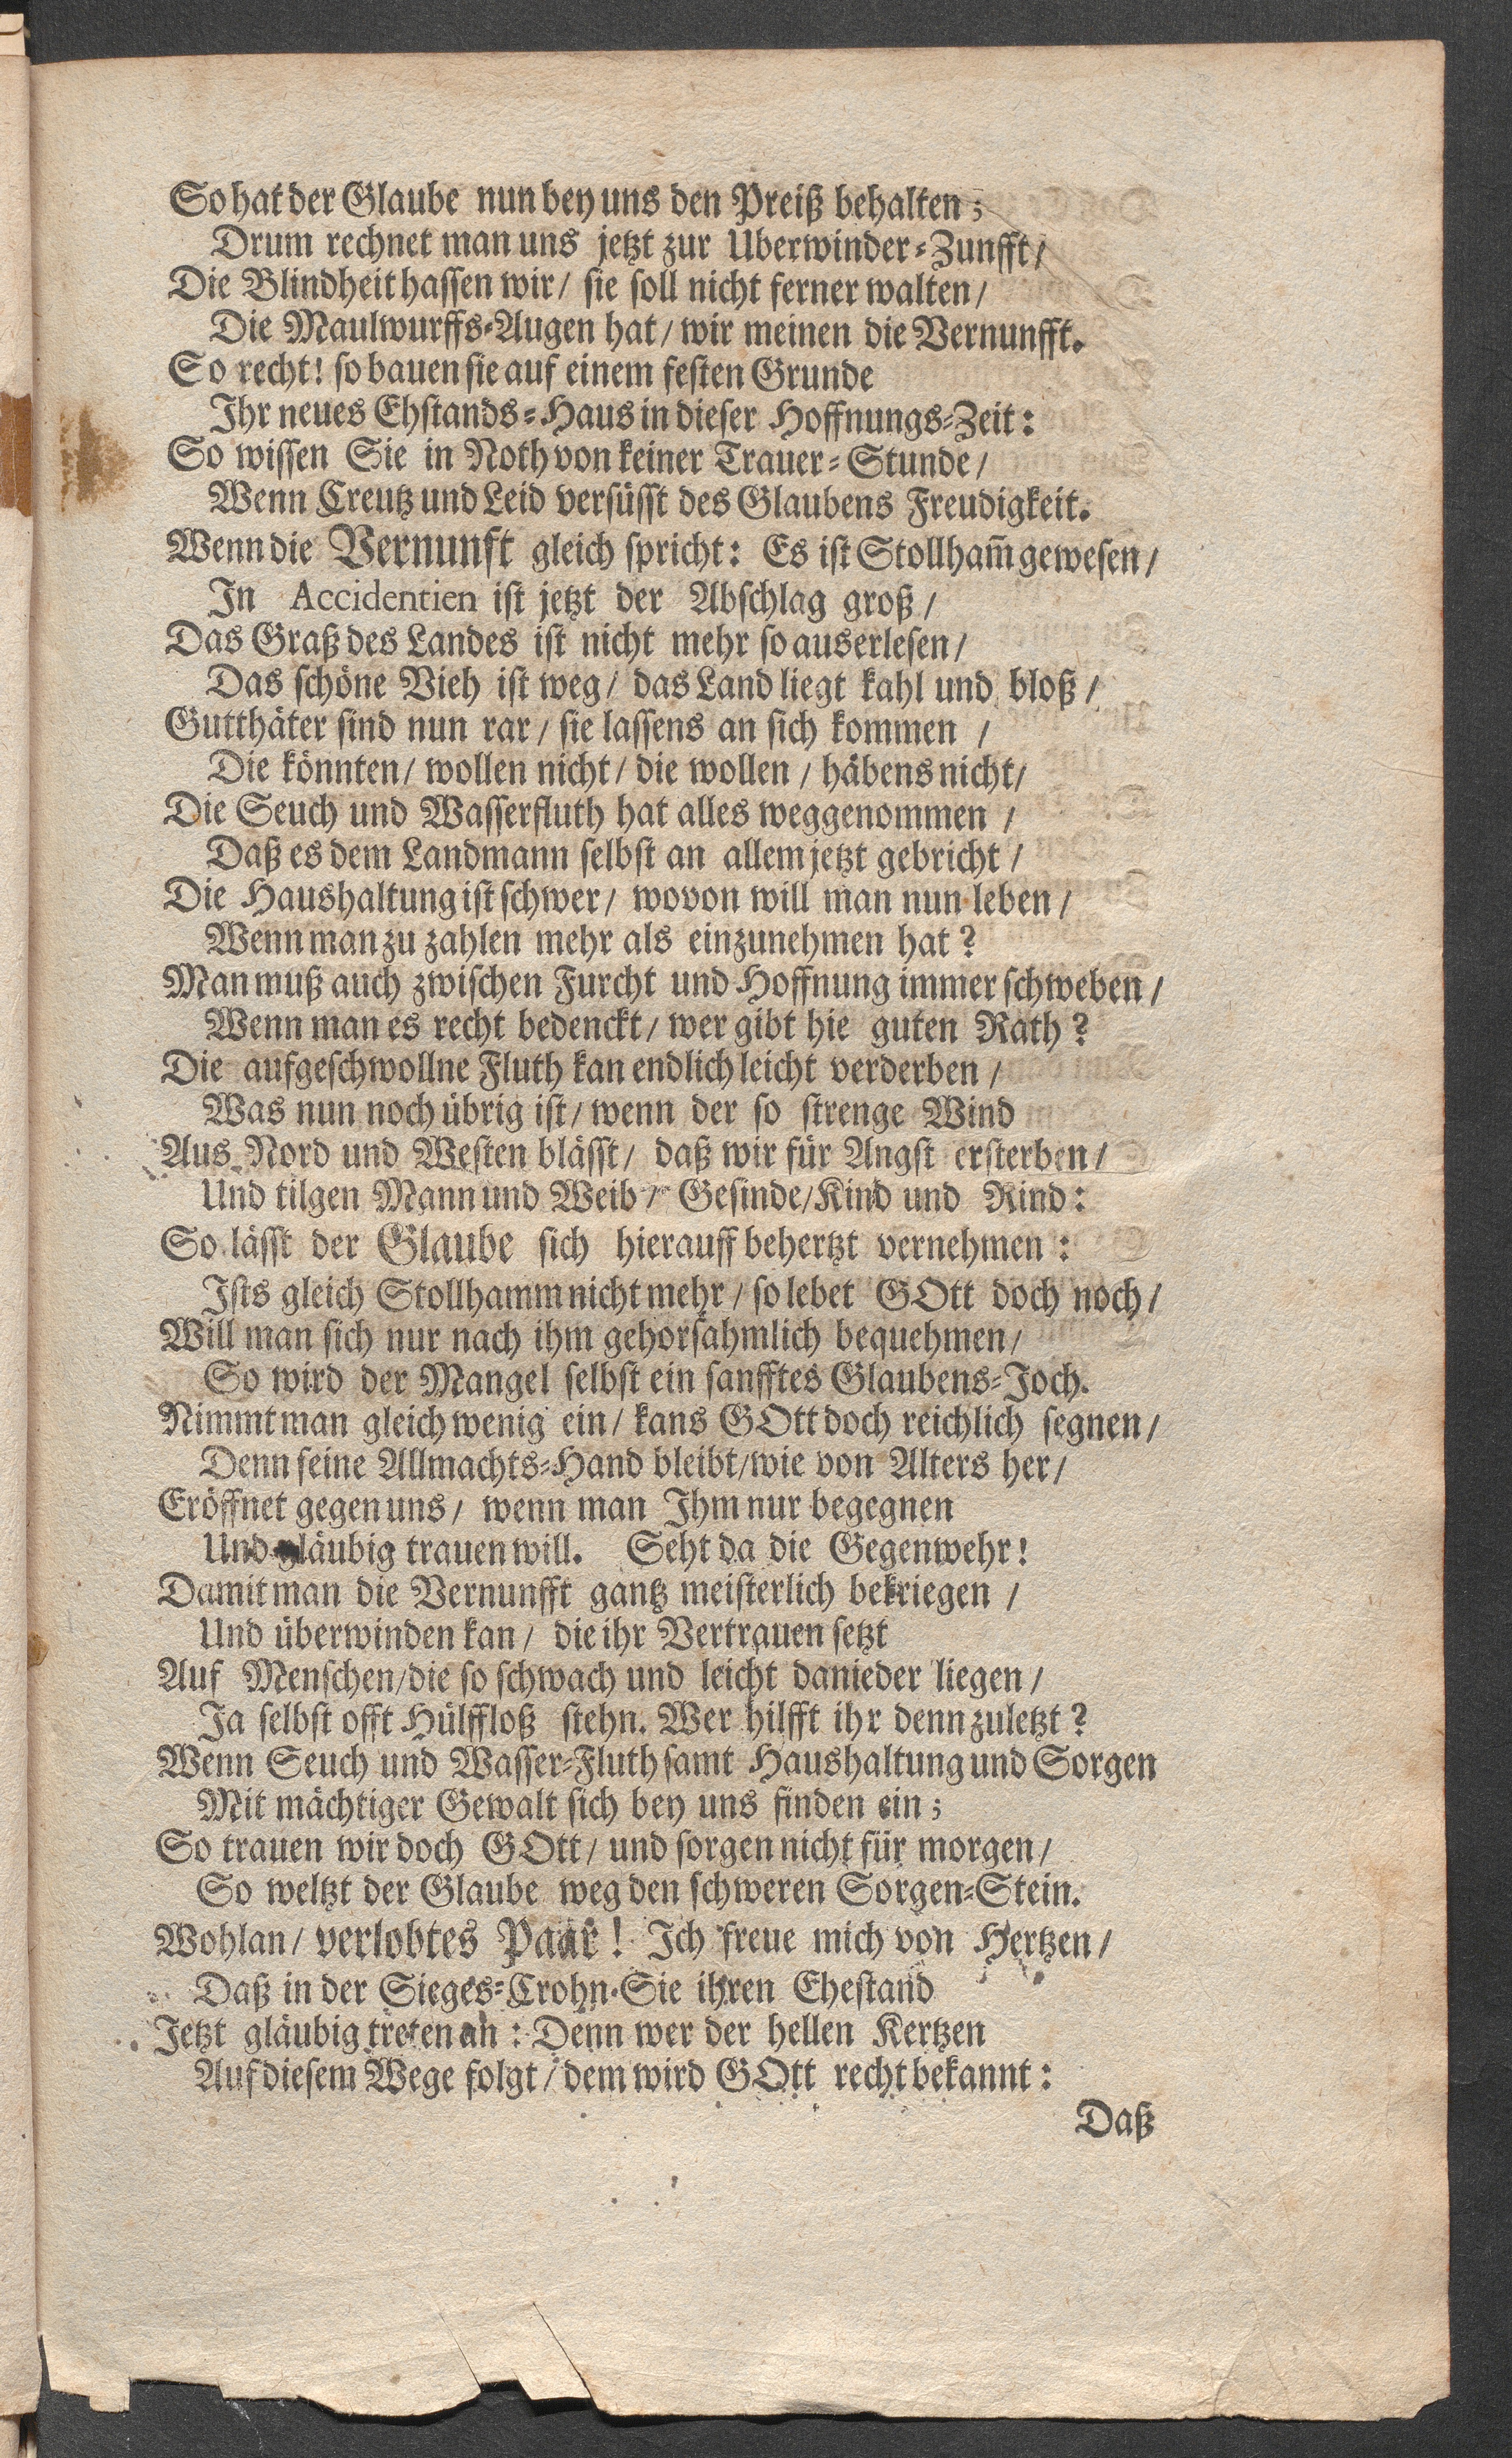 So hat der Glaube nun bey uns den Preiß behalten;
Drum rechnet man uns jetzt zur Uberwinder-Zunfft/
Die Blindheit hassen wir/ sie soll nicht ferner walten/
Die Maulwurffs-Augen hat/ wir meinen die Vernunfft.
So recht! so bauen sie auf einem festen Grunde
Ihr neues Ehstands-Haus in dieser Hoffnungs-Zeit:
So wissen Sie in Noth von keiner Trauer-Stunde/
Wenn Creutz und Leid versüsst des Glaubens Freudigkeit.
Wenn die Vernunft gleich spricht: Es ist Stollham̃ gewesen/
In Accidentien ist jetzt der Abschlag groß/
Das Graß des Landes ist nicht mehr so auserlesen/
Das schöne Vieh ist weg/ das Land liegt kahl und bloß/
Gutthäter sind nun rar/ sie lassens an sich kommen/
Die könnten/ wollen nicht/ die wollen/ häbens nicht/
Die Seuch und Wasserfluth hat alles weggenommen/
Daß es dem Landmann selbst an allem jetzt gebricht/
Die Haushaltung ist schwer/ wovon will man nun leben/
Wenn man zu zahlen mehr als einzunehmen hat?
Man muß auch zwischen Furcht und Hoffnung immer schweben/
Wenn man es recht bedenckt/ wer gibt hie guten Rath?
Die aufgeschwollne Fluth kan endlich leicht verderben/
Was nun noch übrig ist/ wenn der so strenge Wind
Aus Nord und Westen blässt/ daß wir für Angst ersterben/
Und tilgen Mann und Weib/ Gesinde/ Kind und Rind:
So lässt der Glaube sich hierauff behertzt vernehmen:
Ists gleich Stollhamm nicht mehr/ so lebet GOtt doch noch/
Will man sich nur nach ihm gehorsahmlich bequehmen/
So wird der Mangel selbst ein sanfftes Glaubens-Joch.
Nimmt man gleich wenig ein/ kans GOtt doch reichlich segnen/
Denn seine Allmachts-Hand bleibt/ wie von Alters her/
Eröffnet gegen uns/ wenn man Ihm nur begegnen
Und gläubig trauen will. Seht da die Gegenwehr!
Damit man die Vernunfft gantz meisterlich bekriegen/
Und überwinden kan/ die ihr Vertrauen setzt
Auf Menschen/ die so schwach und leicht danieder liegen/
Ja selbst offt Hülffloß stehn. Wer hilfft ihr denn zuletzt?
Wenn Seuch und Wasser-Fluth samt Haushaltung und Sorgen
Mit mächtiger Gewalt sich bey uns finden ein;
So trauen wir doch GOtt/ und sorgen nicht für morgen/
So weltzt der Glaube weg den schweren Sorgen-Stein.
Wohlan/ verlobtes Paar! Ich freue mich von Hertzen/
Daß in der Sieges-Crohn Sie ihren Ehestand
Jetzt gläubig treten an: Denn wer der hellen Kertzen
Auf diesem Wege folgt/ dem wird GOtt recht bekannt:
Daß